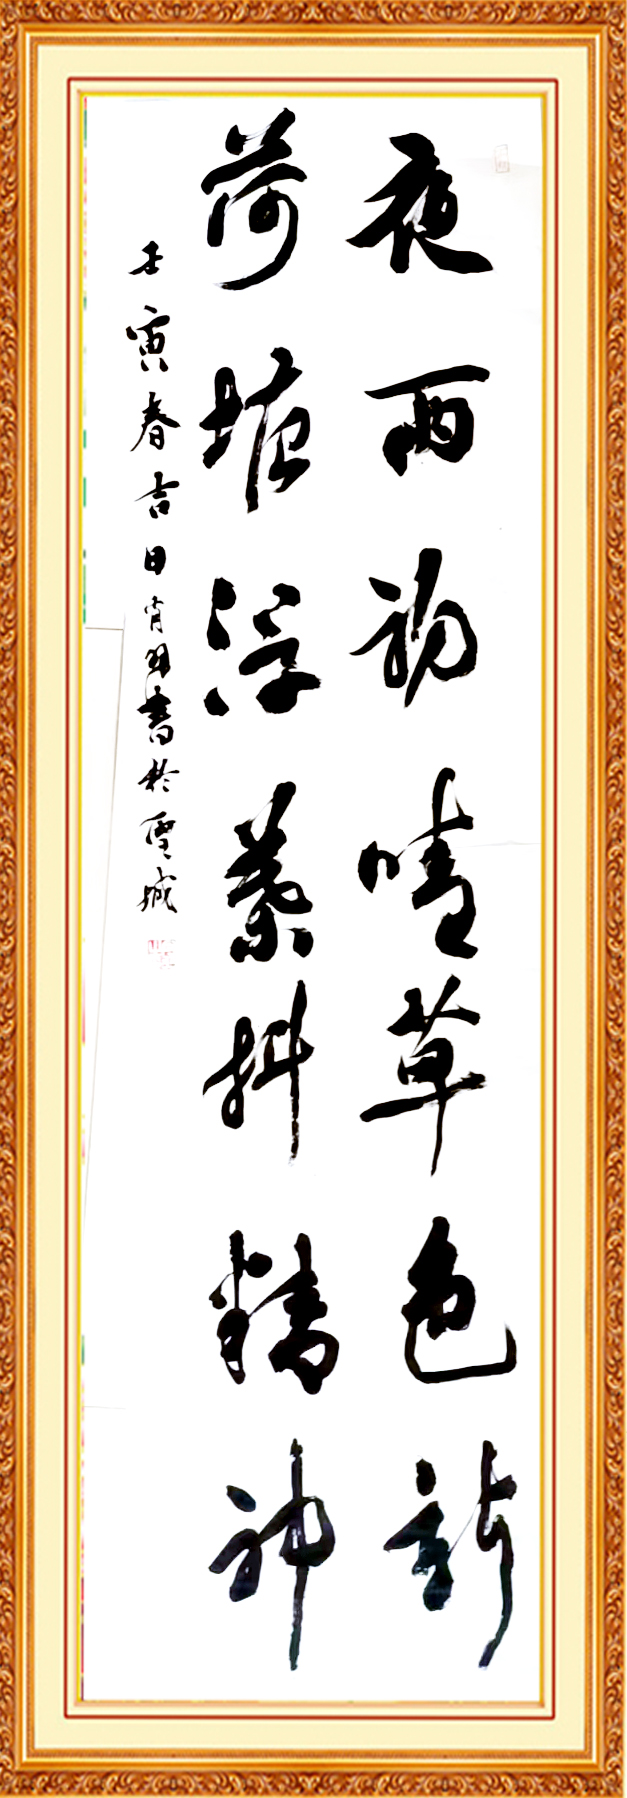 夜雨初晴草色新
荷塘浮葉抖精神
壬寅春吉日肖書於聖城